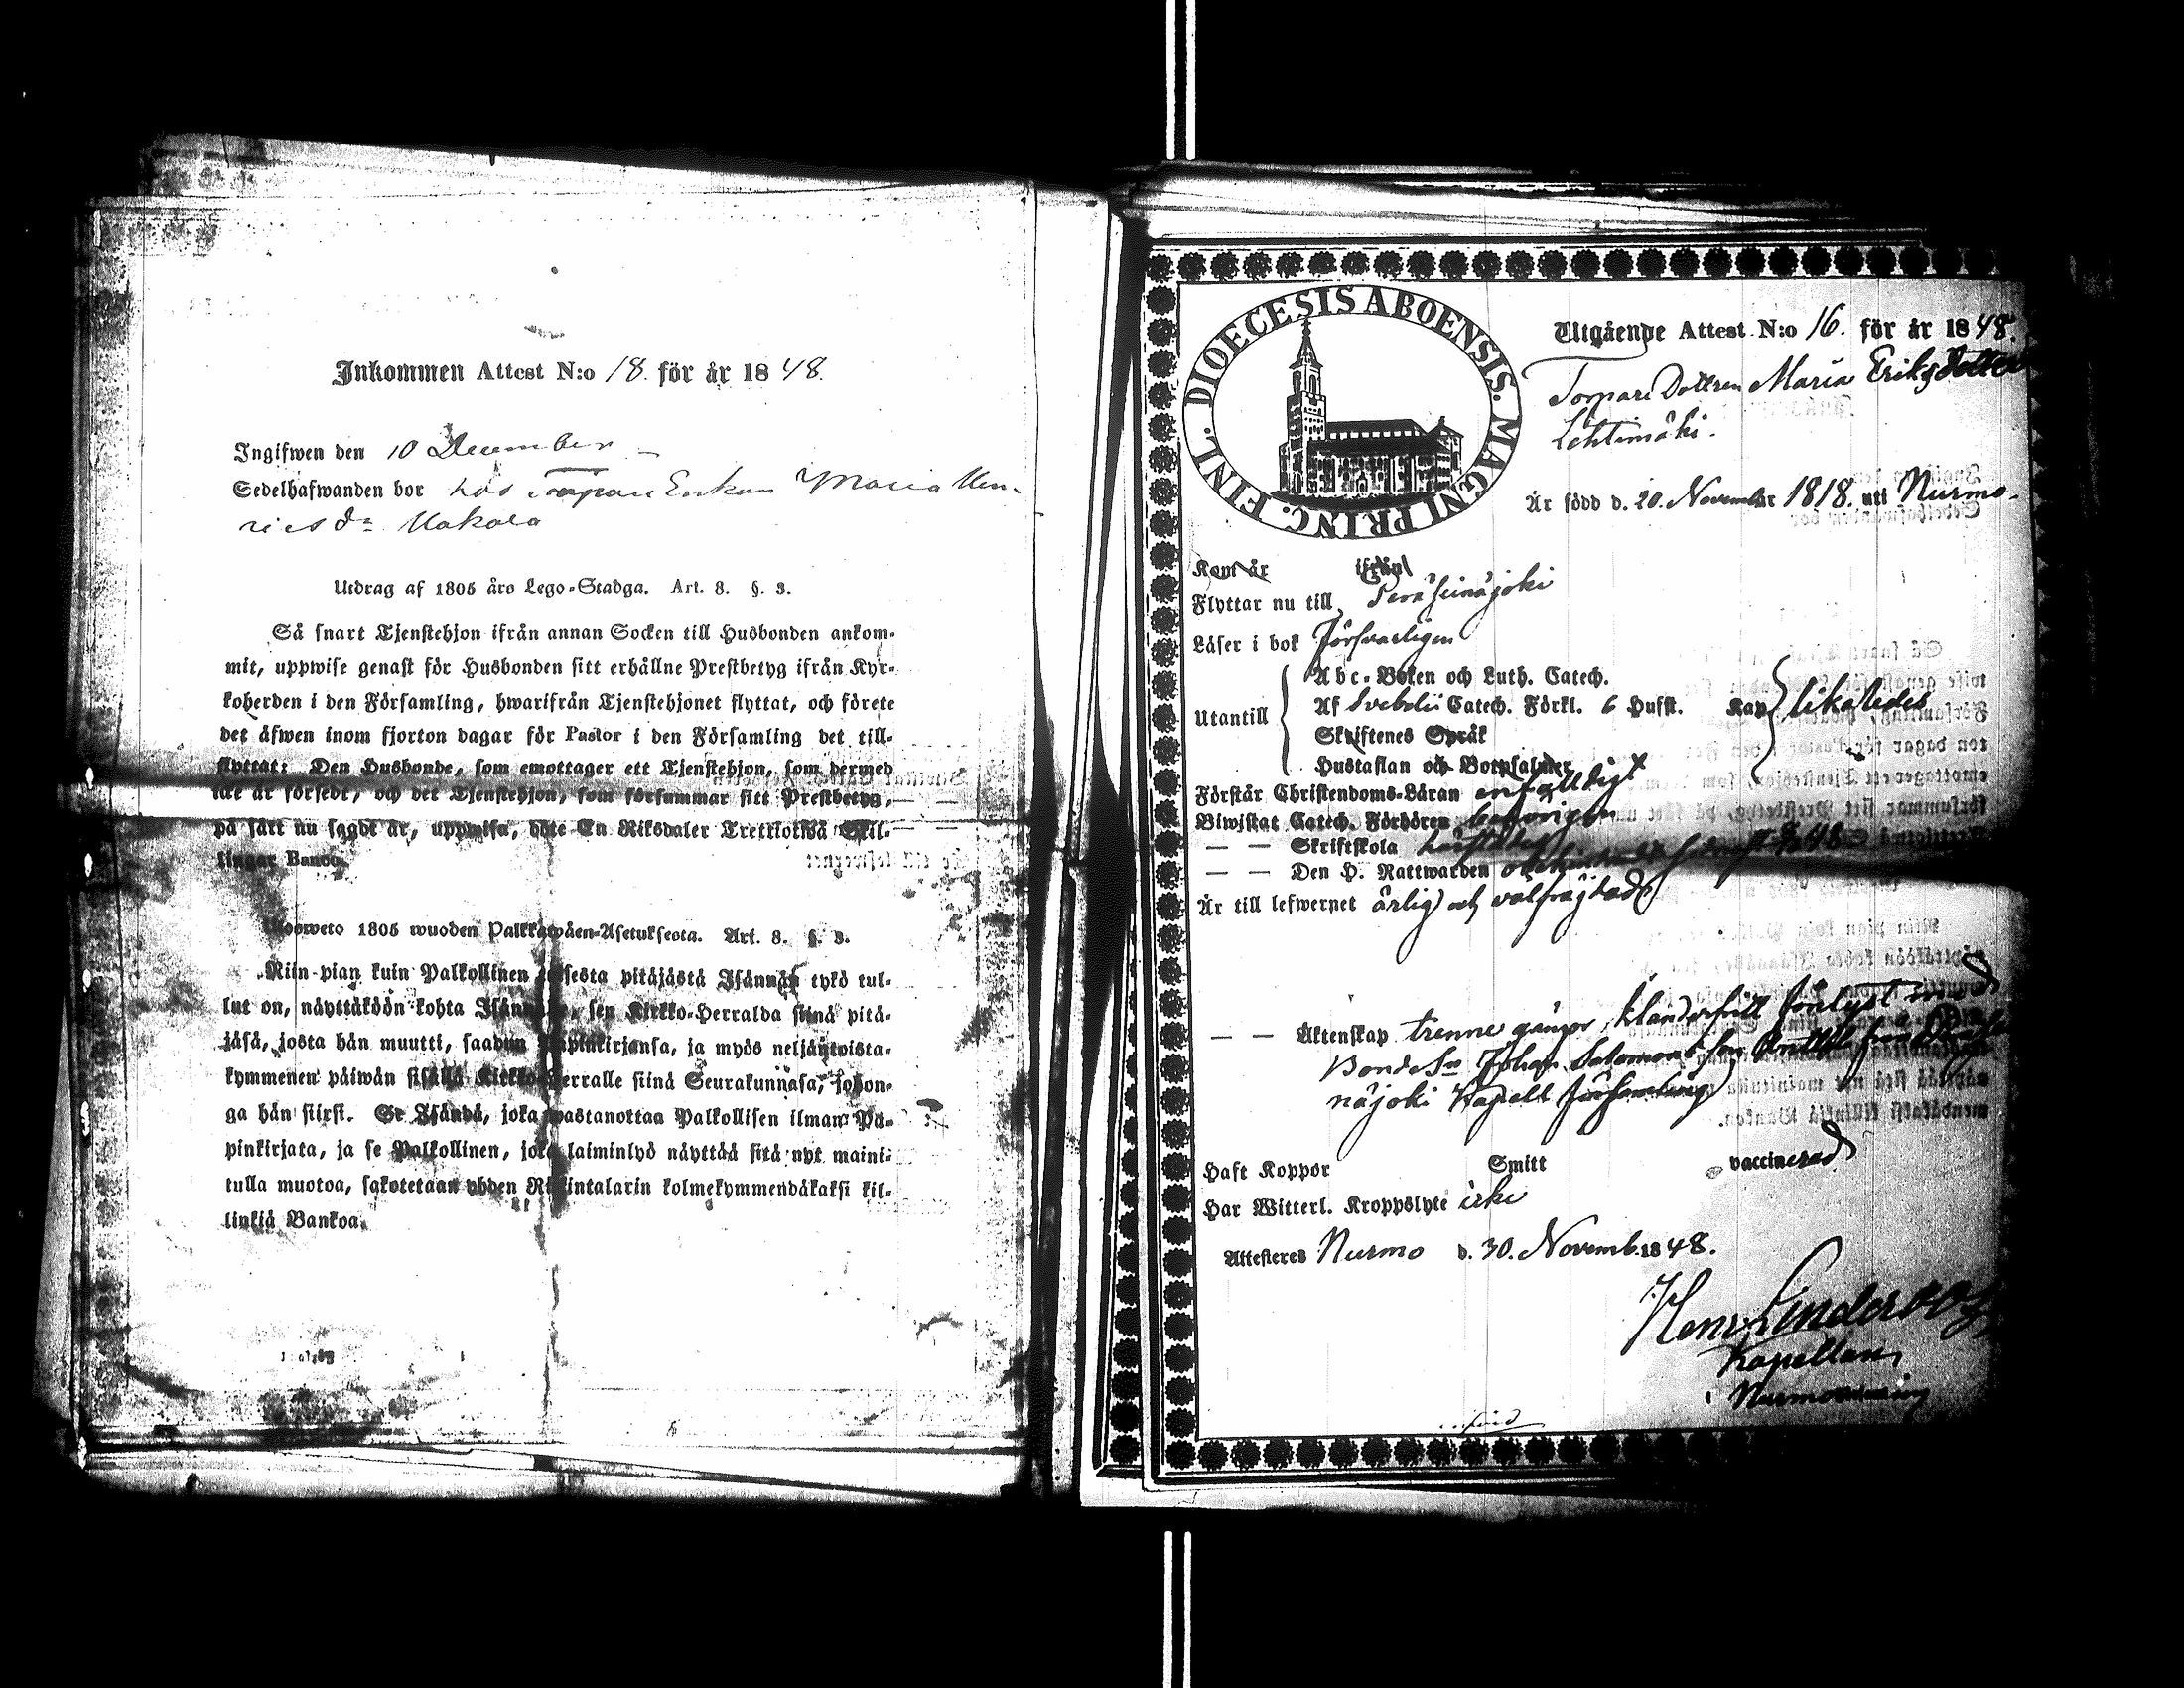 Inkommen Attest N:o 18. för år 1848.
Ingifwen den 10 December
Sedelhafwanden bor hos Torpare Enkan Maria Hen-
ricsdr Kakola
Utdrag af 1805 års Lego-Stadga. Art. 8. §. 3.
Så snart Tjenstehjon ifrån annan Socken till Husbonden ankom-
mit, uppwise genast för Husbonden sitt erhållne Prestbetyg ifrån Kyr-
koherden i den Församling, hwarifrån Tjenstehjonet flyttat, och förete
det äfwen inom fjorton dagar för Pastor i den Församling det till-
flyttat: Den Husbonde, som emottager ett Tjenstehjon, som dermed
icke är försedt, och det Tjenstehjon, som försummar sitt Prestbetyg,
på sätt nu sagdt är, uppwisa, böte En Riksdaler Trettiotwå Skil-
lingar Banco.
Ulosweto 1805 wuoden Palkkawäen-Asetuksesta. Art. 8. §. 3.
Niin pian kuin Palkollinen toisesta pitäjästä Isännän tykö tul-
lut on, näyttäköön kohta Isännälle, sen Kirkko-Herralda siinä pitä-
jäsä, josta hän muutti, saadun Papinkirjansa, ja myös neljäntoista-
kymmenen päiwän sisällä Kirkko-Herralle siinä Seurakunnasa, johon-
ga hän siirsi. Se Isändä, joka wastanottaa Palkollisen ilman Pa-
pinkirjata, ja se Palkollinen, joka laiminlyö näyttää sitä nyt maini-
tulla muotoa, sakotetaan yhden Riikintalarin kolmekymmendäkaksi kil-
linkiä Bankoa.
DIOECESIS ABOENSIS. MAGNI PRINC. FINL.
Utgående Attest N:o 16. för år 1848.
Torpare Dottren Maria Eriks Dotter
Lehtimäki.
Är född d. 20. November 1818. uti Nurmo.
Kom år ifrån
Flyttar nu till Peräseinäjoki
Läser i bok försvarligen
Utantill
Abc-Boken och Luth. Catech.
Af Svebelii Catech. Förkl. 6 Hufst. Kap likaledes
Skriftenes Språk
Hustaflan och Botpsalmer
Förstår Christendoms-Läran enfalldigt
Biwistat Catech. Förhören behörigen
— — Skriftskola
— — Den H. Nattwarden 48
Är till lefwernet ärlig och välfrägdad
— — Äktenskap trenne gångor klanderfritt förlyst med
BondeSn Johan Salomonsson
näjoki Kapell församling
Haft Koppor Smitt vaccinerad
Har Witterl. Kroppslyte icke
Attesteres Nurmo d. 30. Novemb. 1848.
Henr. Linderoos
Kapellan
i Nurmo